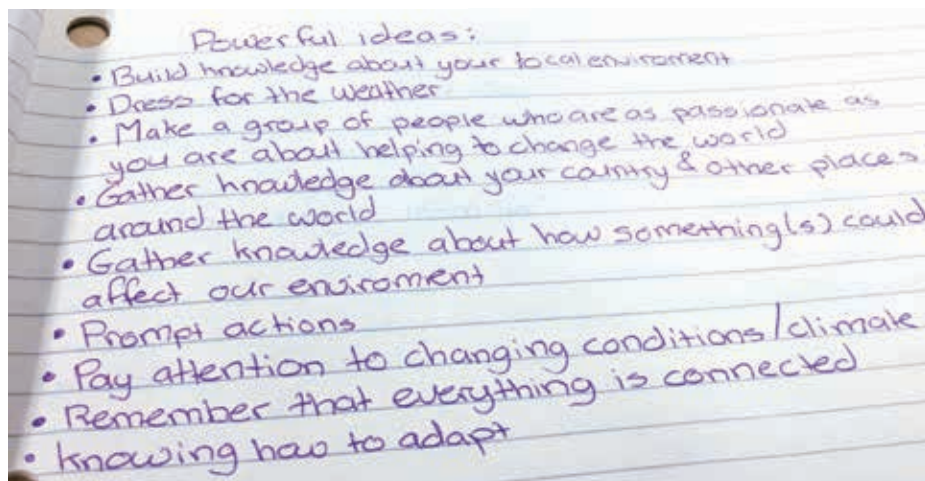 Powerful ideas:
• Build knowledge about your local enviroment
• Dress for the weather
• Make a group of people who are as passionate as
you are about helping to change the world
• Gather knowledge about your country & other places
around the world
• Gather knowledge about how something(s) could
affect our enviroment
• Prompt actions
• Pay attention to changing conditions/climate
• Remember that everything is connected
• knowing how to adapt